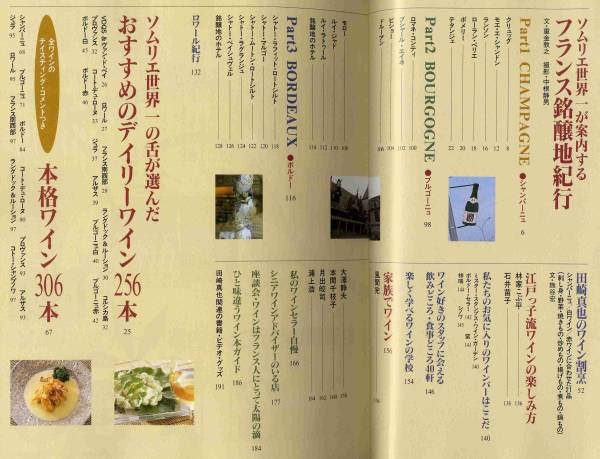 ソムリエ世界一が案内する
フランス銘醸地紀行
文・重金敦之　撮影・中根静男
Part1 CHAMPAGNE ●シャンパーニュ 6
クリュッグ 8
モエ・エ・シャンドン 12
ランソン 16
ローラン・ペリエ 18
ポメリー 20
テタンジェ 22
Part2 BOURGOGNE ●ブルゴーニュ 98
ロマネ・コンティ 100
ブシャール・エイネ 102
ピショー 104
ドルーアン 106
モロー 108
ルイ・ジャド 110
ルイ・ラトゥール 112
銘醸地のホテル 114
Part3 BORDEAUX ●ボルドー 116
シャトー・ラフィット・ロートシルト 118
シャトー・マルゴー 120
シャトー・ムートン・ロートシルト 122
シャトー・ラグランジュ 124
シャトー・ベイシュヴェル 126
銘醸地のホテル 128
ロワール紀行 132
ソムリエ世界一の舌が選んだ
おすすめのデイリーワイン256本 25
VDQS & ヴァン・ド・ペイ 26
ロワール 27
フランス南西部 29
ラングドック & ルーション 30
コルシカ島 32
プロヴァンス 31
コート・デュ・ローヌ 33
ジュラ 37
アルザス 39
ブルゴーニュ白 40
ブルゴーニュ赤 42
ボルドー白 45
ボルドー赤 46
全ワインの
テイスティング・コメントつき
本格ワイン306本 67
シャンパーニュ 68
ブルゴーニュ 71
ボルドー 84
コート・デュ・ローヌ 90
プロヴァンス 93
アルザス 93
ジュラ 95
ロワール 95
フランス南西部 97
ラングドック & ルーション 97
コトー・シャンプノワ 97
田崎真也のワイン割烹 52
シャンパーニュ、白ワイン、赤ワインに合わせた21品
(刺し身・野菜・焼きもの・炒めもの・揚げもの・煮もの・鍋もの)
文・魏谷宏
江戸っ子流ワインの楽しみ方
林家こぶ平 136
石井苗子 138
私たちのお気に入りのワインバーはここだ 140
ミスター・スタンプス・ワインガーデン 140
ボルドーセラー 142
葡 144
シノワ 145
祥瑞 146
ワイン好きのスタッフに会える
飲みどころ・食事どころ40軒 146
楽しく学べるワインの学校 154
家族でワイン 156
風間完 156
大澤静夫 158
本間千枝子 160
月出皎司 162
浦上浩 164
私のワインセラー自慢 166
シニアワインアドバイザーのいる店 177
座談会・ワインはフランス人にとって太陽の滴 184
ひと味違うワイン本ガイド 186
田崎真也関連の書籍・ビデオ・グッズ 191